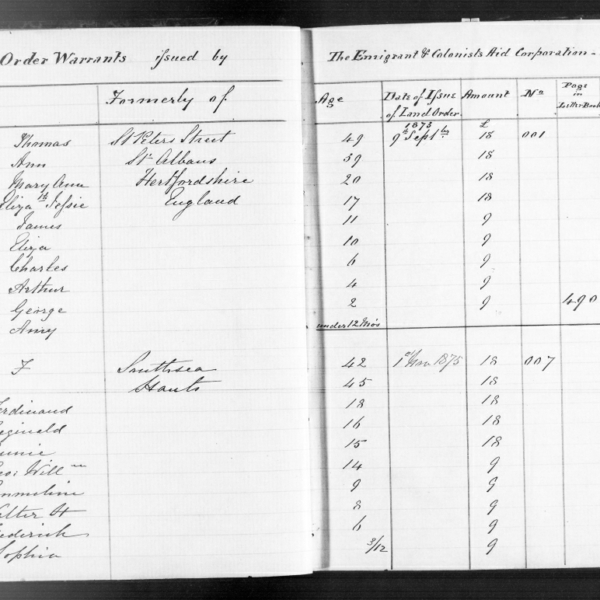 Order Warrants issued by The Emigrant & Colonists Aid Corporation
Formerly of Age Date of Issue of Land Order Amount No Page in Letter Book
1873 £
Thomas St Peters Street 49 9th Septr 18 001
Ann St Albans 39 18
Mary Ann Hertfordshire 20 18
Eliza England 17 18
James 11 9
Eliza 10 9
Charles 6 9
Arthur 4 9
George 2 9 490
Amy under 12 Mos
F Southsea 42 1st 1875 18 007
Hants 45 18
18 18
16 18
15 18
Will 14 9
9 9
H 8 9
6 9
Sophia 3/12 9